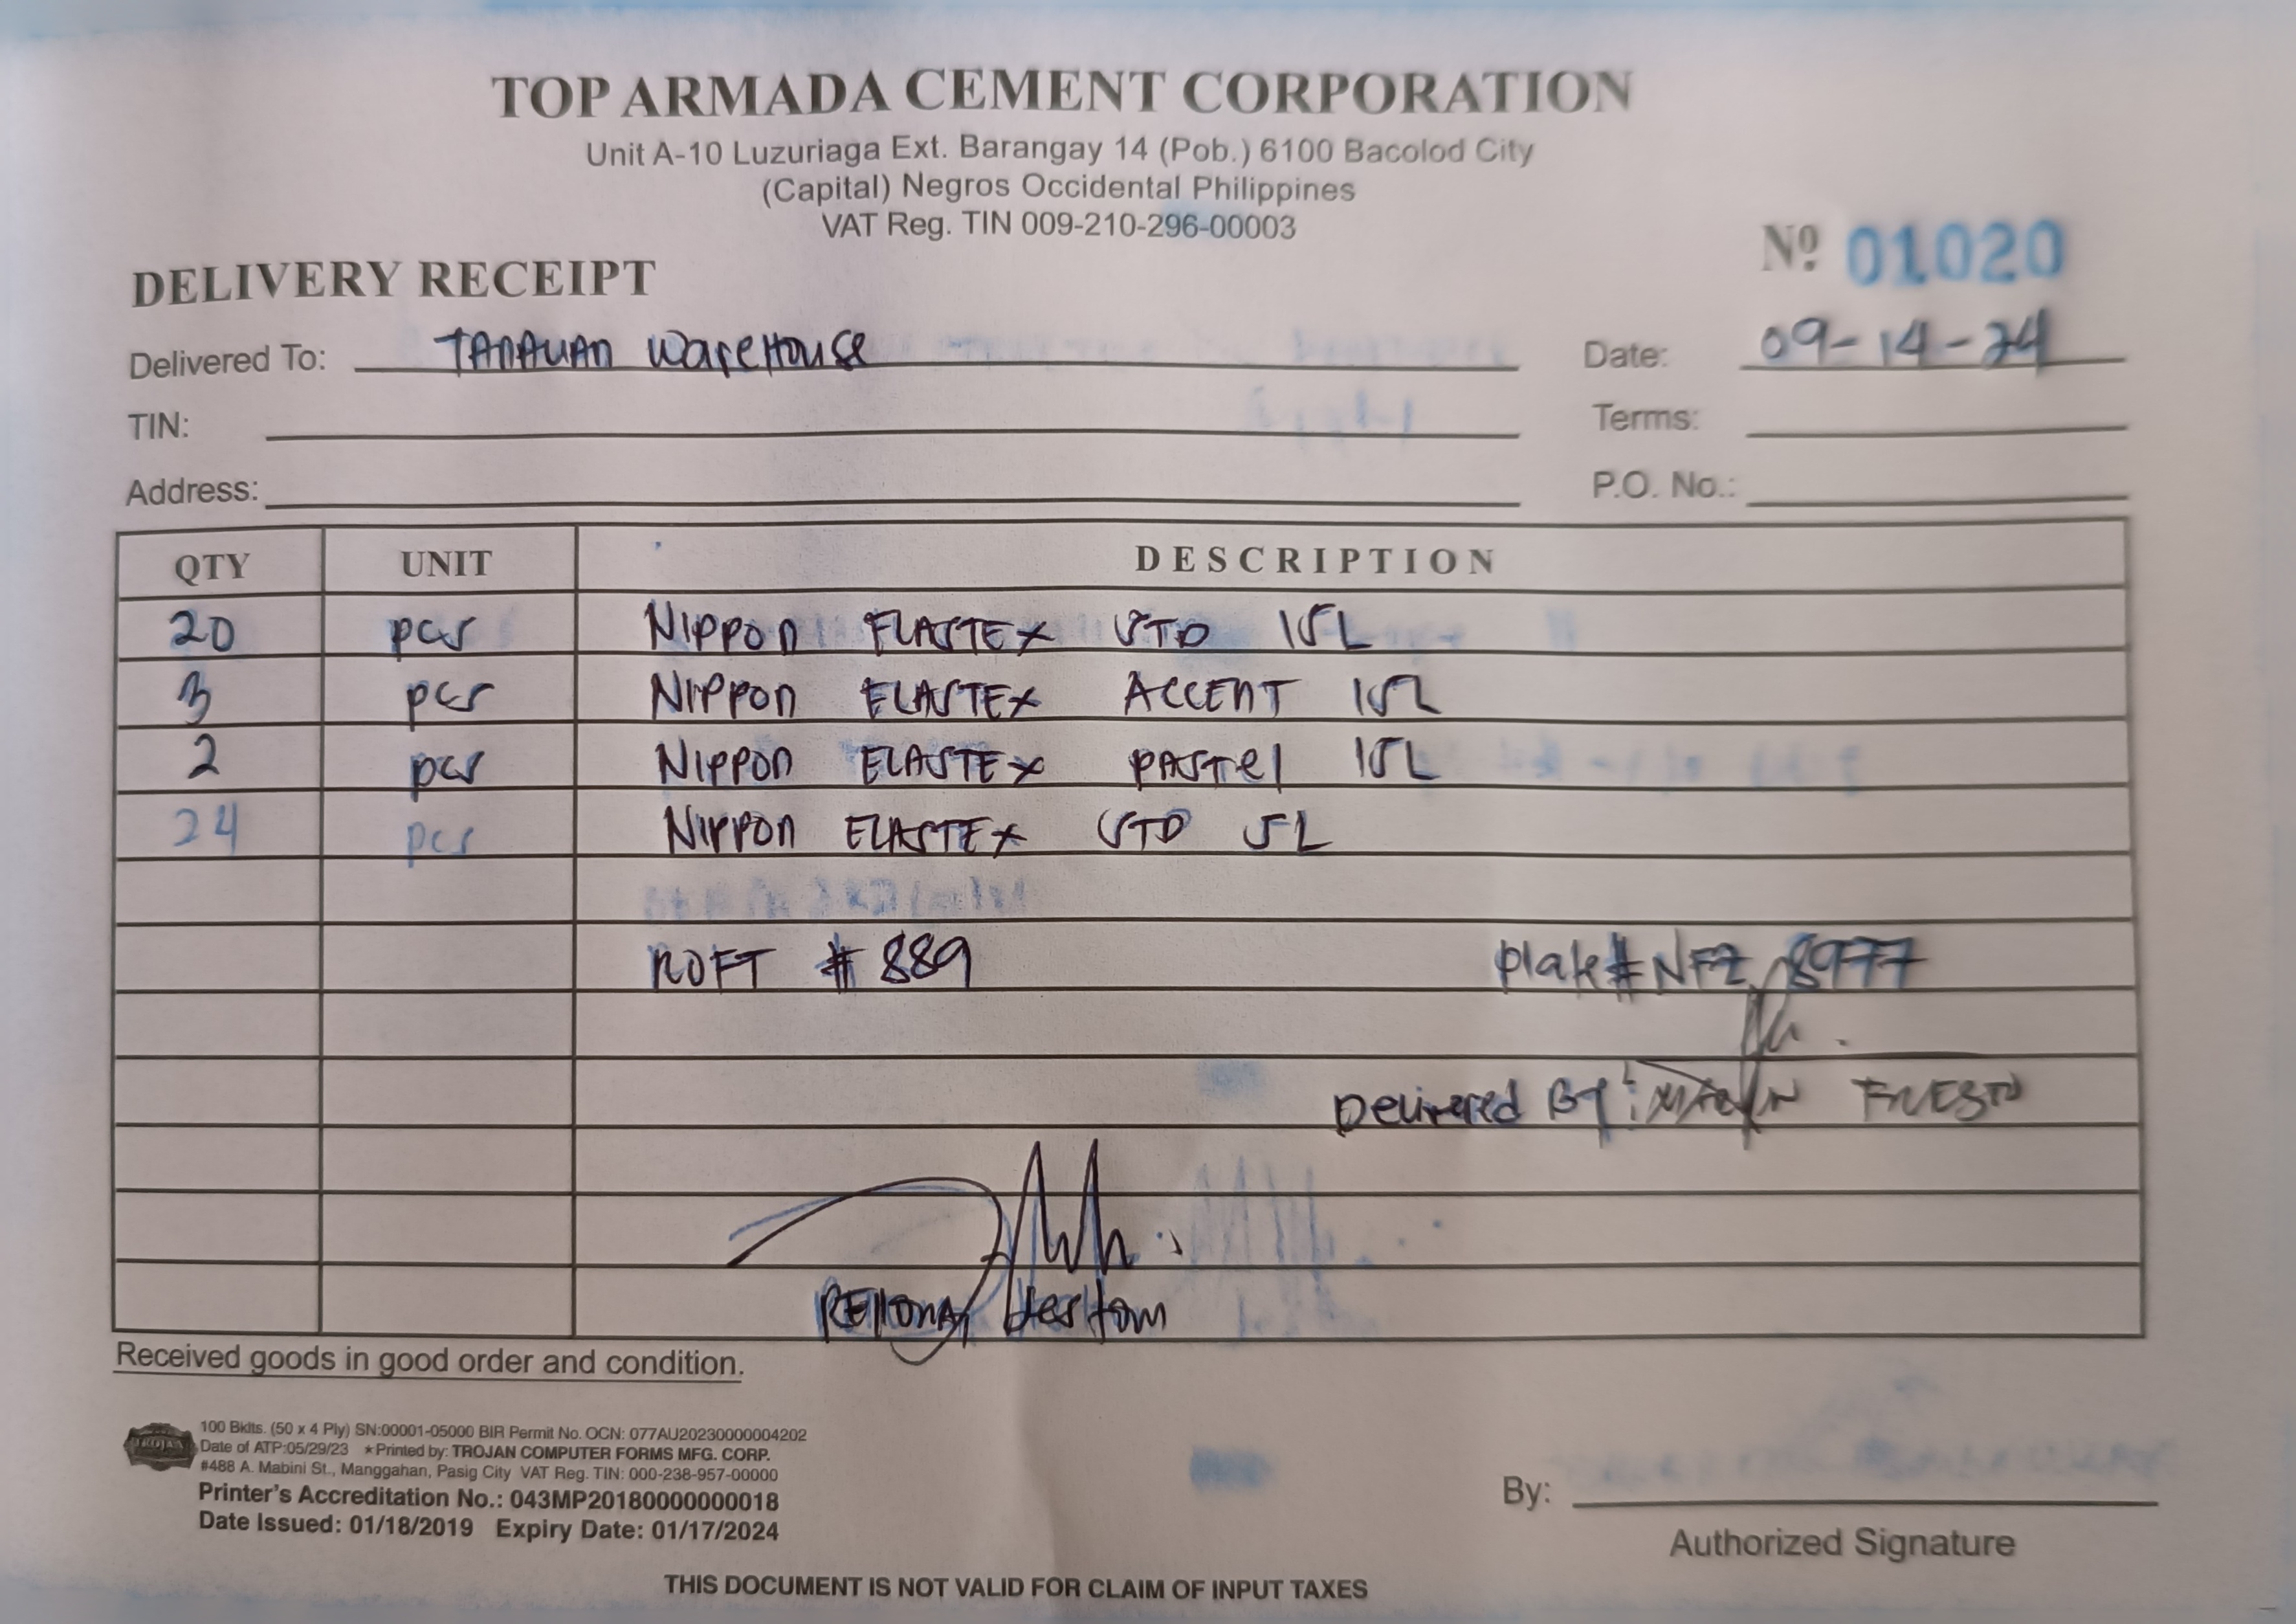 TOP ARMADA CEMENT CORPORATION
Unit A-10 Luzuriaga Ext. Barangay 14 (Pob.) 6100 Bacolod City
(Capital) Negros Occidental Philippines
VAT Reg. TIN 009-210-296-00003
Nº 01020
DELIVERY RECEIPT
Delivered To: TANAUAN WareHouse Date: 09-14-24
TIN: Terms:
Address: P.O. No.:
QTY UNIT DESCRIPTION
20 pcs NIPPON ELASTEX STD 15L
3 pcs NIPPON ELASTEX ACCENT 15L
2 pcs NIPPON ELASTEX PASTEl 15L
24 pcs NIPPON ELASTEX STD 5L
ROFT # 889 Plate # NFZ 8977
Delivered By:
Received goods in good order and condition.
100 Bklts. (50 x 4 Ply) SN:00001-05000 BIR Permit No. OCN: 077AU20230000004202
Date of ATP:05/29/23 ★Printed by: TROJAN COMPUTER FORMS MFG. CORP.
TROJAN #488 A. Mabini St., Manggahan, Pasig City VAT Reg. TIN: 000-238-957-00000
Printer's Accreditation No.: 043MP20180000000018
Date Issued: 01/18/2019 Expiry Date: 01/17/2024
By:
Authorized Signature
THIS DOCUMENT IS NOT VALID FOR CLAIM OF INPUT TAXES